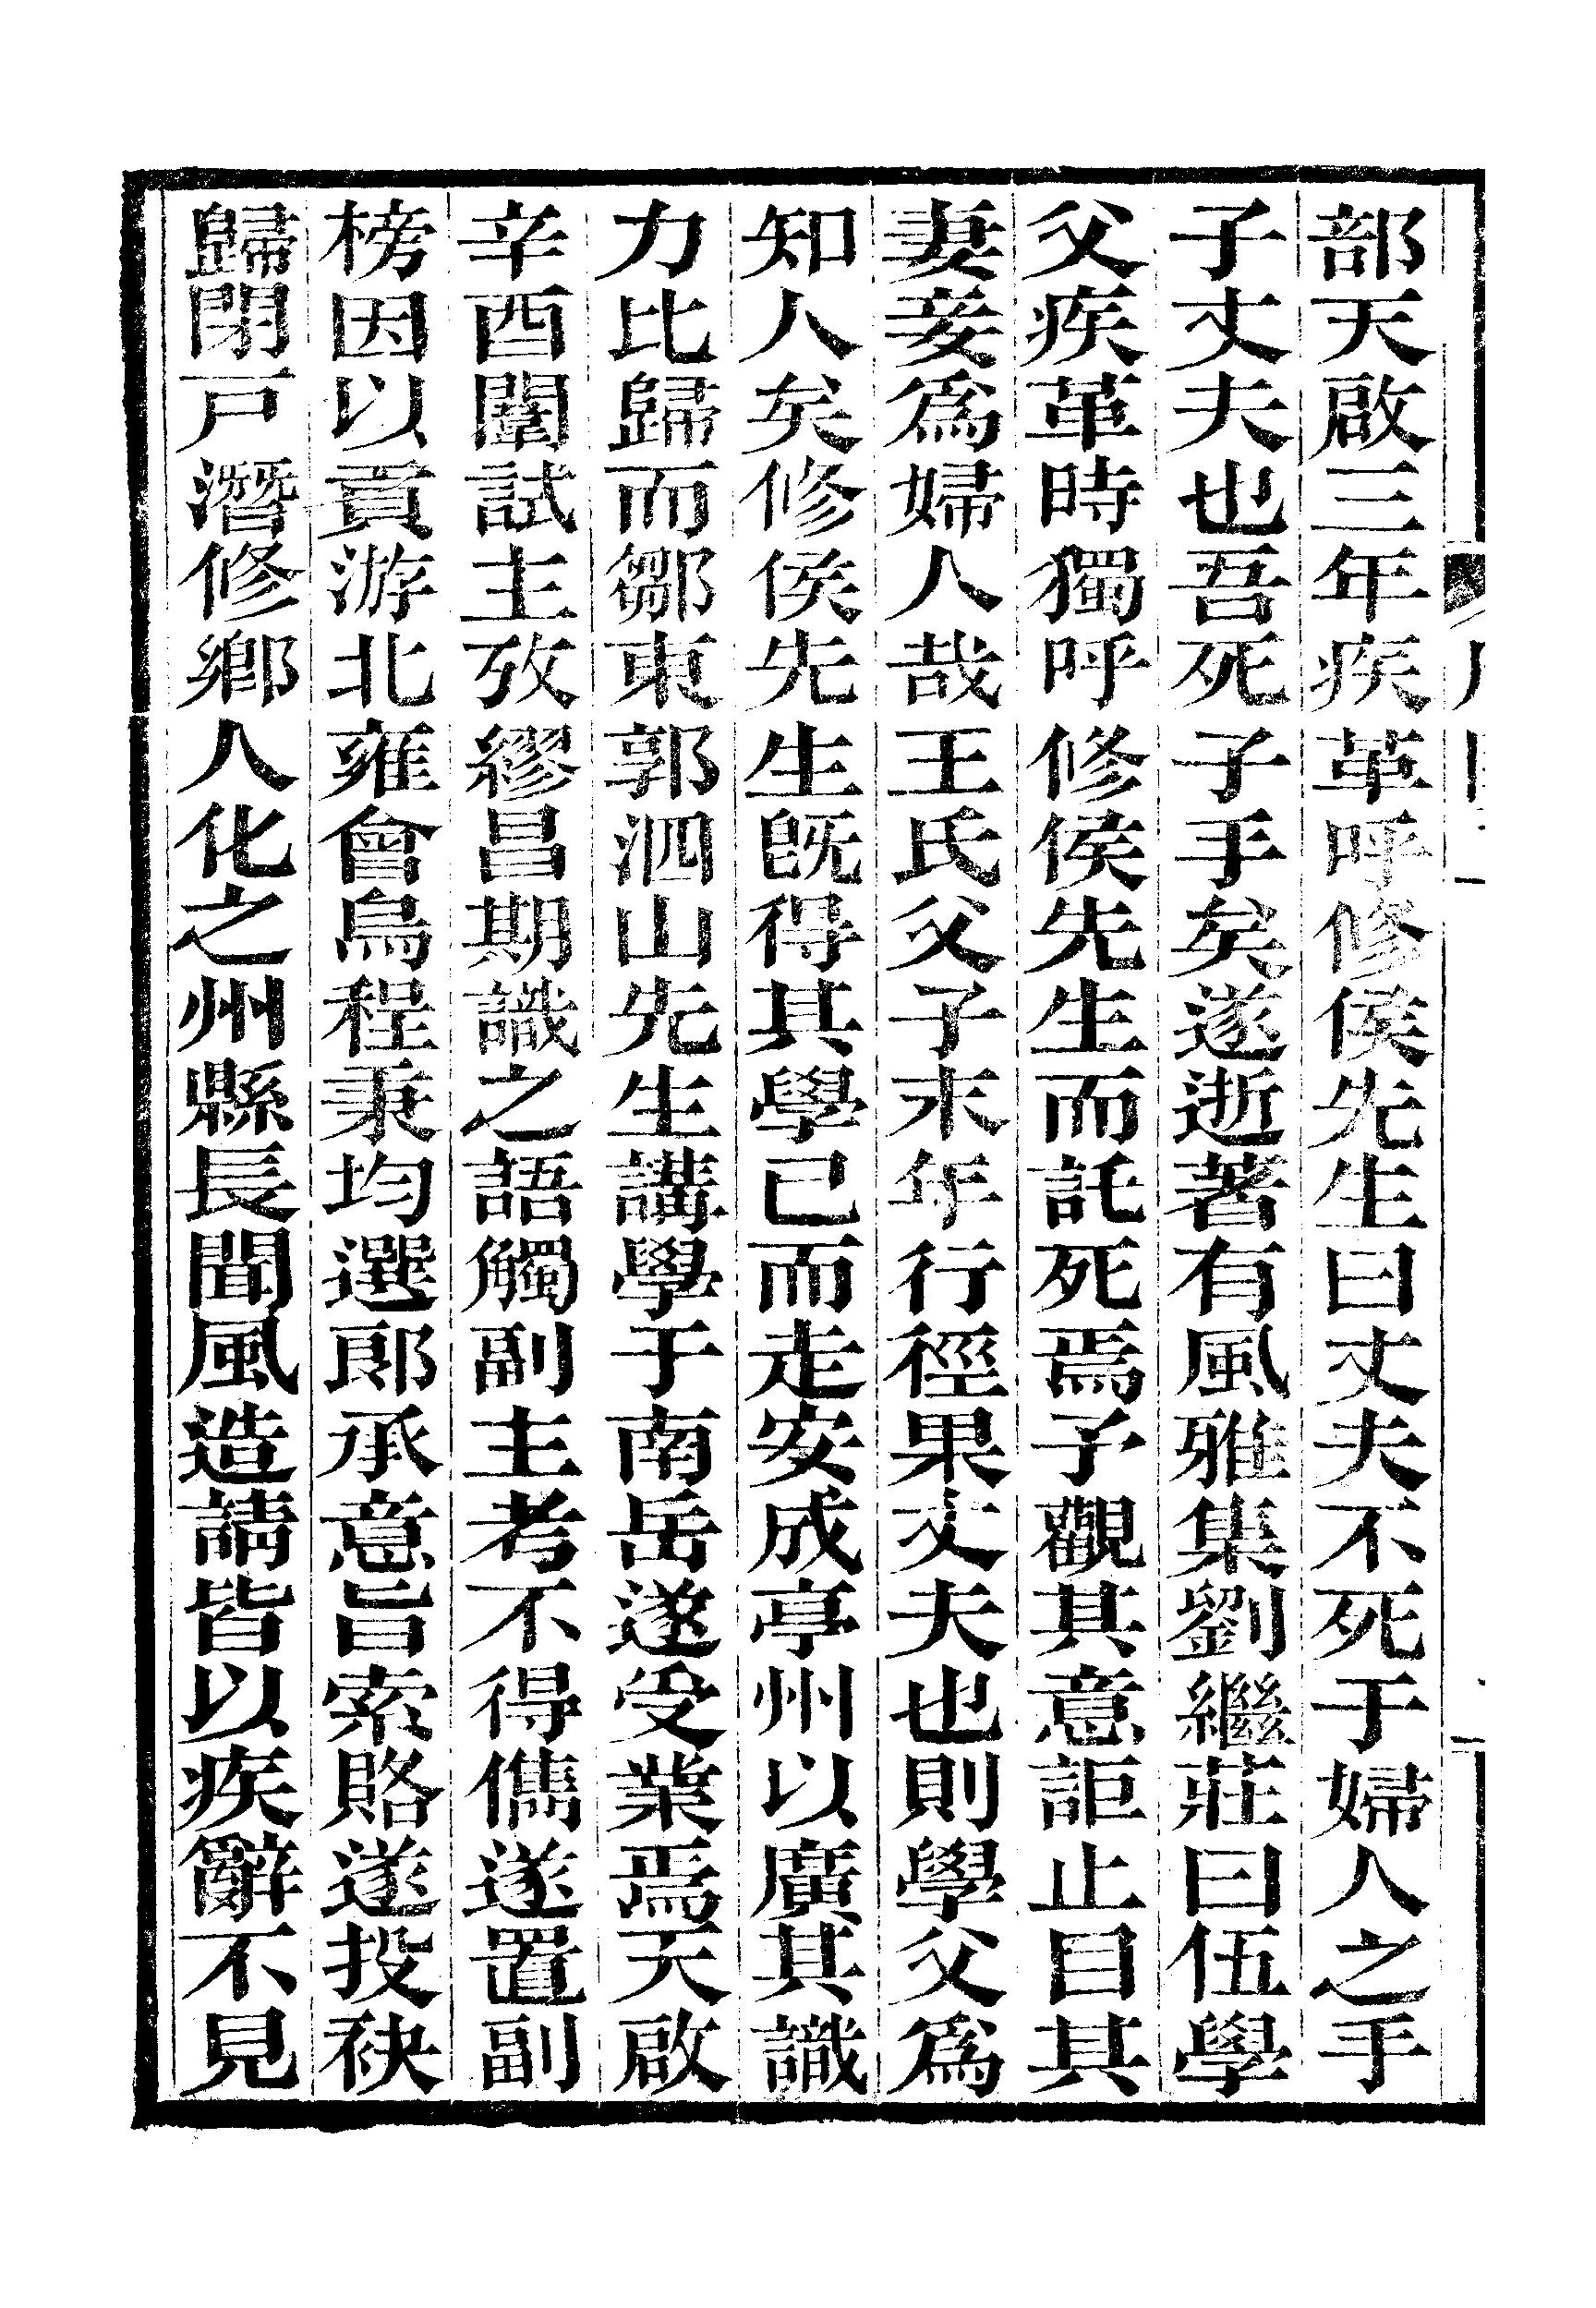 部天啟三年疾革呼修侯先生曰丈夫不死于婦人之手
子丈夫也吾死子手矣遂逝著有風雅集劉繼莊曰伍學
父疾革時獨呼修侯先生而託死焉予觀其意詎止目其
妻妾爲婦人哉王氏父子末年行徑果丈夫也則學父爲
知人矣修侯先生旣得其學已而走安成亭州以廣其識
力比歸而鄒東郭泗山先生講學于南岳遂受業焉天啟
辛酉闈試主攷繆昌期識之語觸副主考不得儁遂置副
榜因以貢游北雍會烏程秉均選郎承意旨索賂遂投袂
歸閉戸潛修鄉人化之州縣長聞風造請皆以疾辭不見